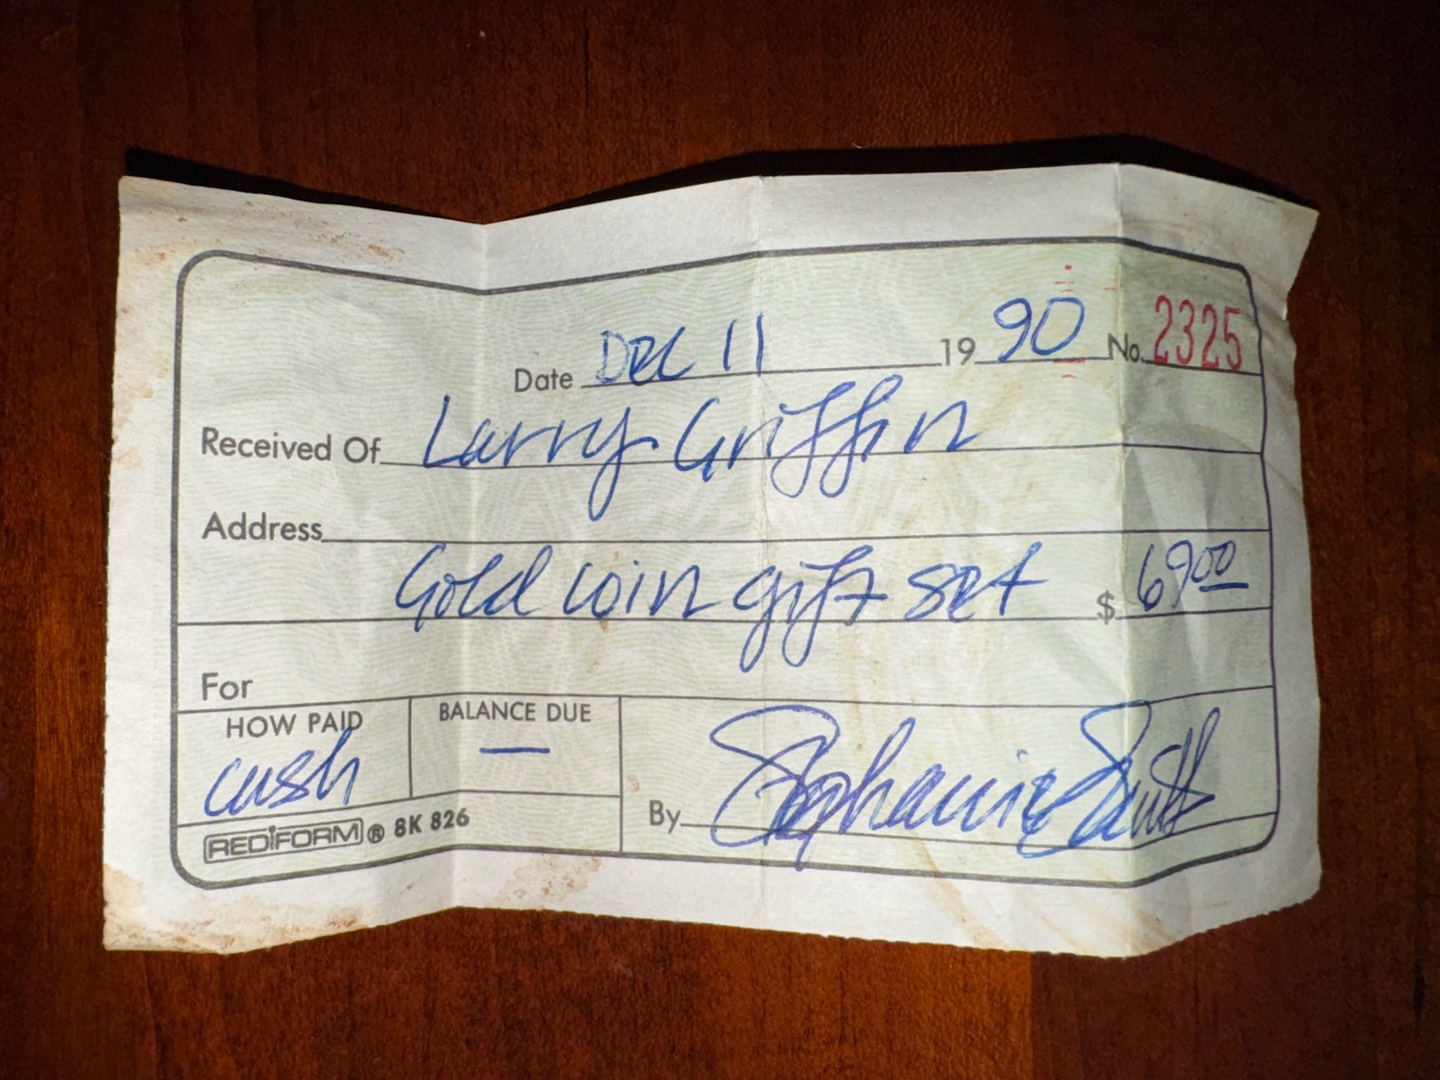 Date Dec 11 19 90 No. 2325
Received Of Larry Griffin
Address
Gold coin gift set $ 69.00
For
HOW PAID BALANCE DUE
cash —
By Stephanie Smith
REDIFORM ® 8K 826